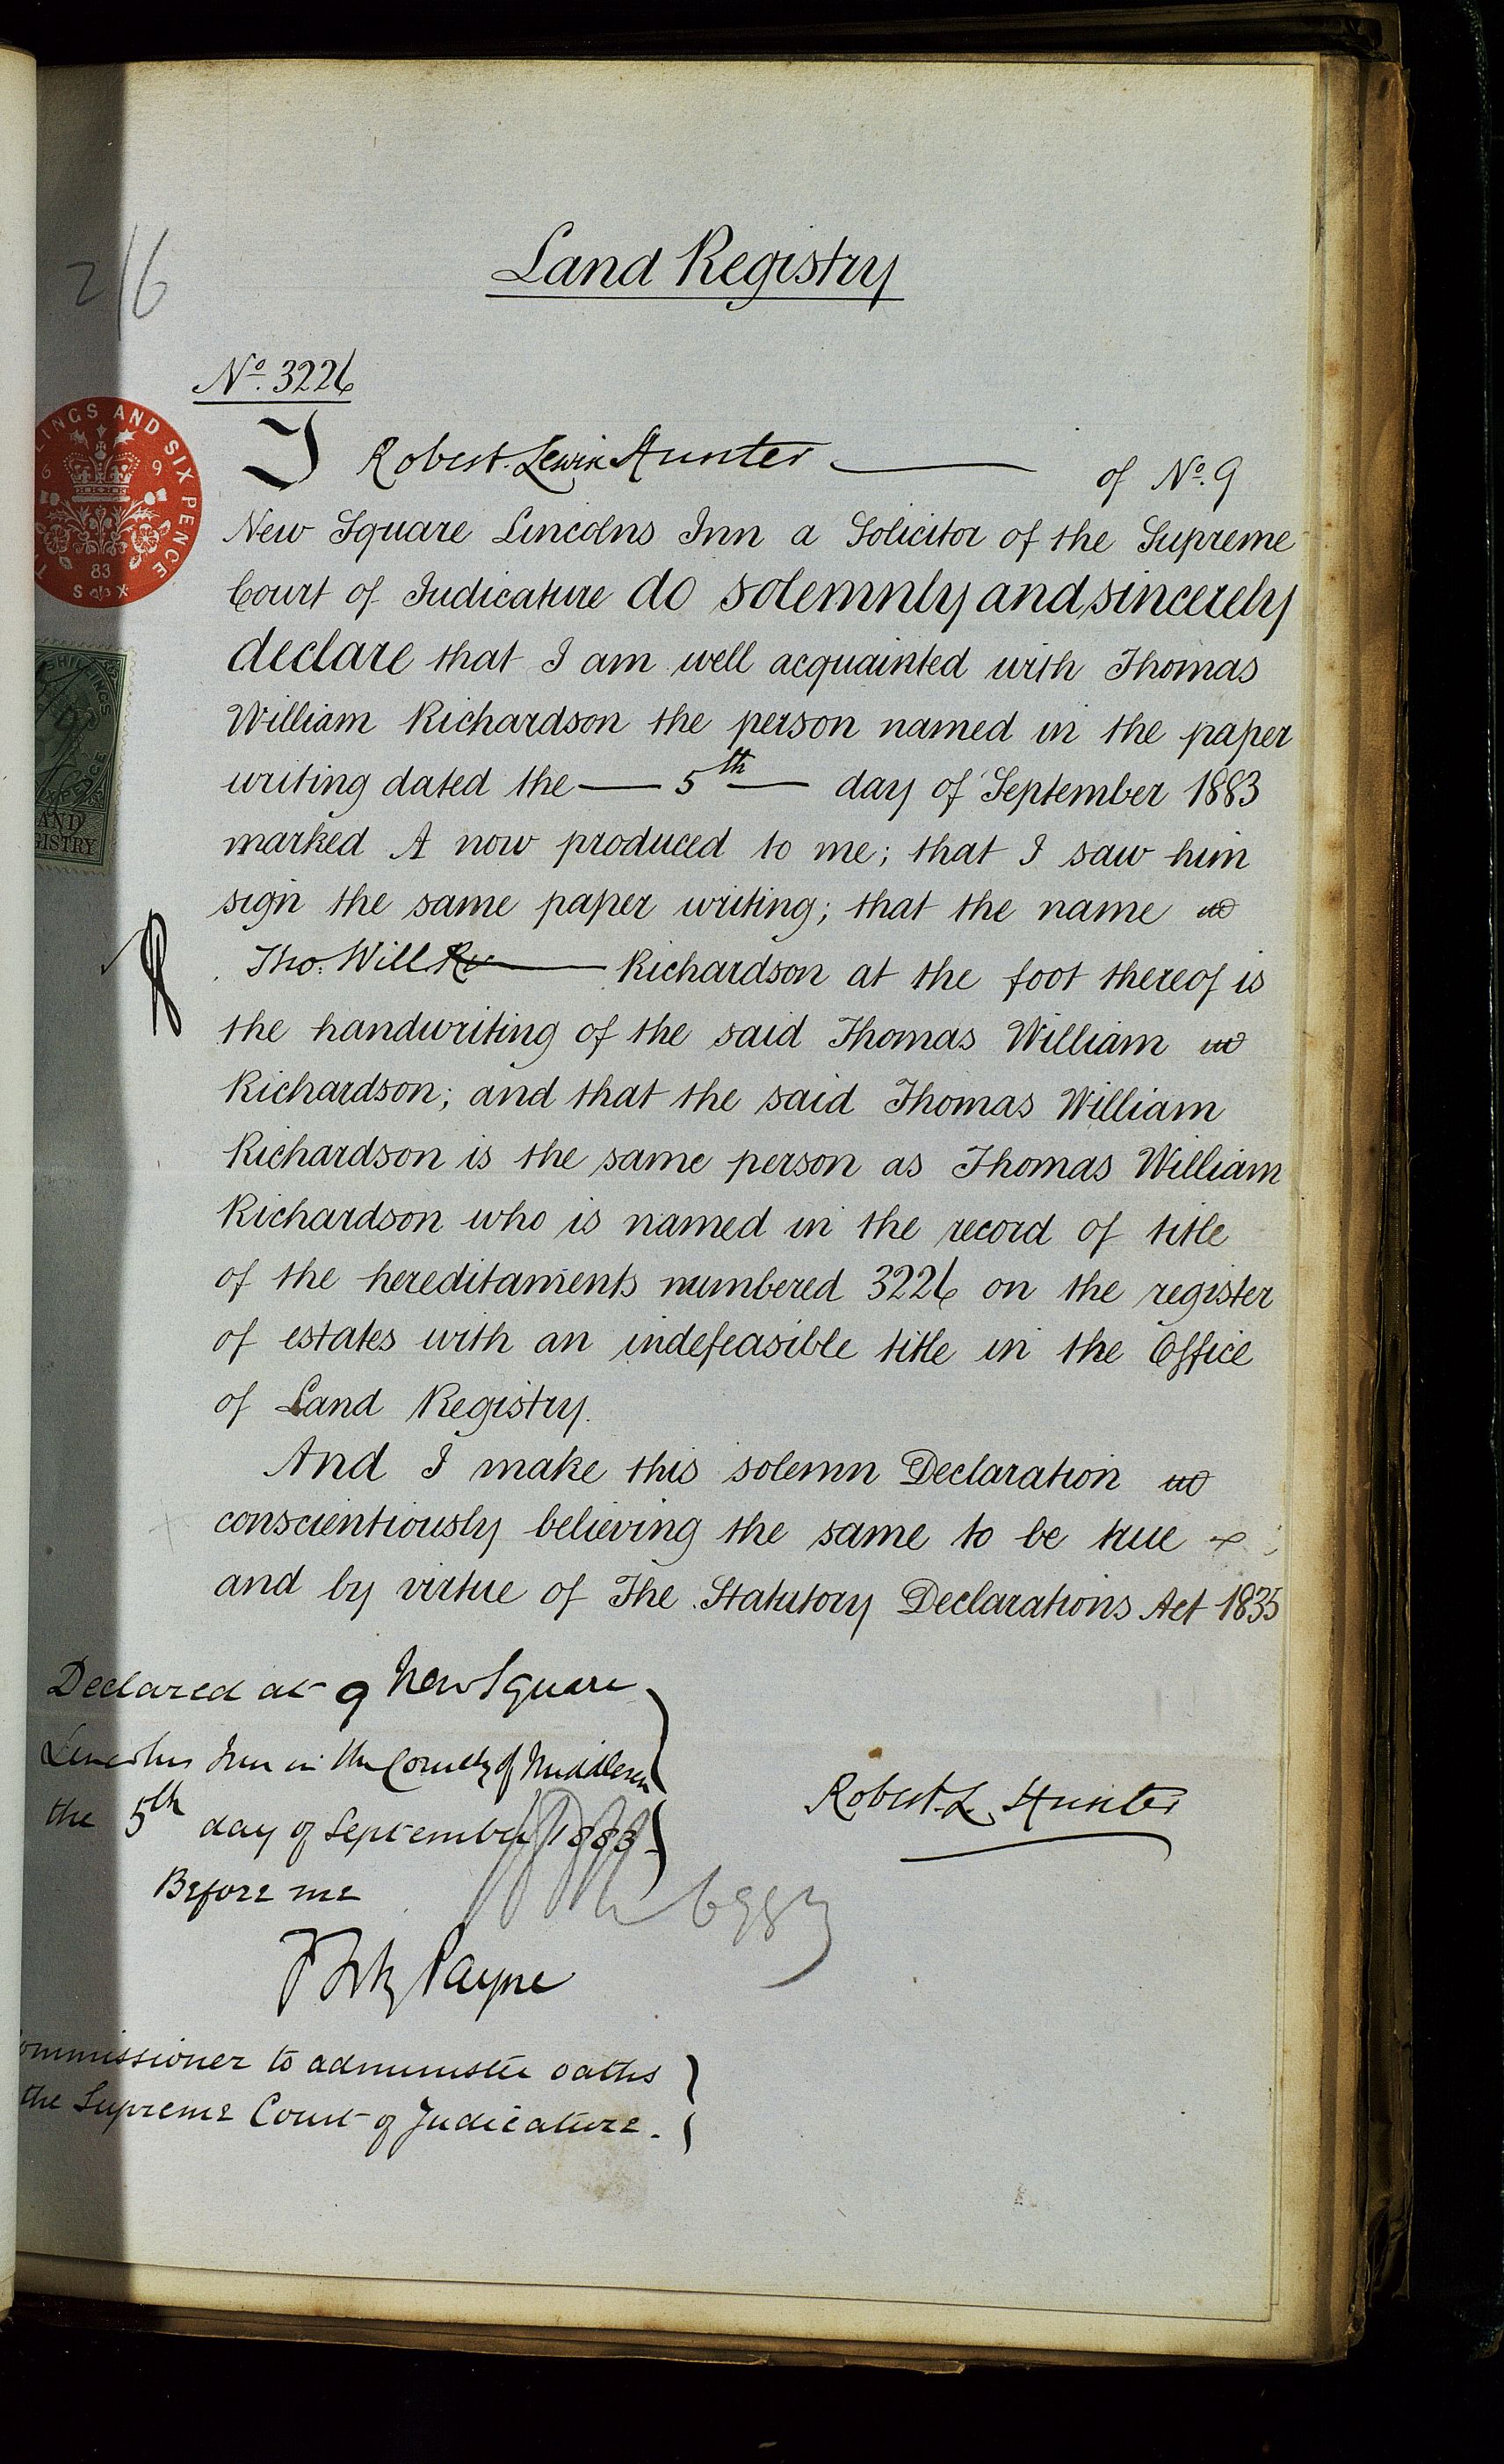 2/6
Land Registry
No. 3226
LINGS AND SIX PENCE
6 9
83
I Robert Lewin Hunter of No. 9
New Square Lincolns Inn a Solicitor of the Supreme
Court of Judicature do solemnly and sincerely
declare that I am well acquainted with Thomas
William Richardson the person named in the paper
writing dated the 5th day of September 1883
marked A now produced to me; that I saw him
sign the same paper writing; that the name
Tho. Will Richardson at the foot thereof is
the handwriting of the said Thomas William
Richardson; and that the said Thomas William
Richardson is the same person as Thomas William
Richardson who is named in the record of title
of the hereditaments numbered 3226 on the register
of estates with an indefeasible title in the Office
of Land Registry.
And I make this solemn Declaration
conscientiously believing the same to be true
and by virtue of The Statutory Declarations Act 1835
Declared at 9 New Square
Lincolns Inn in the County of Middlesex
the 5th day of September 1883
Before me
Robert L. Hunter
Payne
ommissioner to administer oaths
the Supreme Court of Judicature.